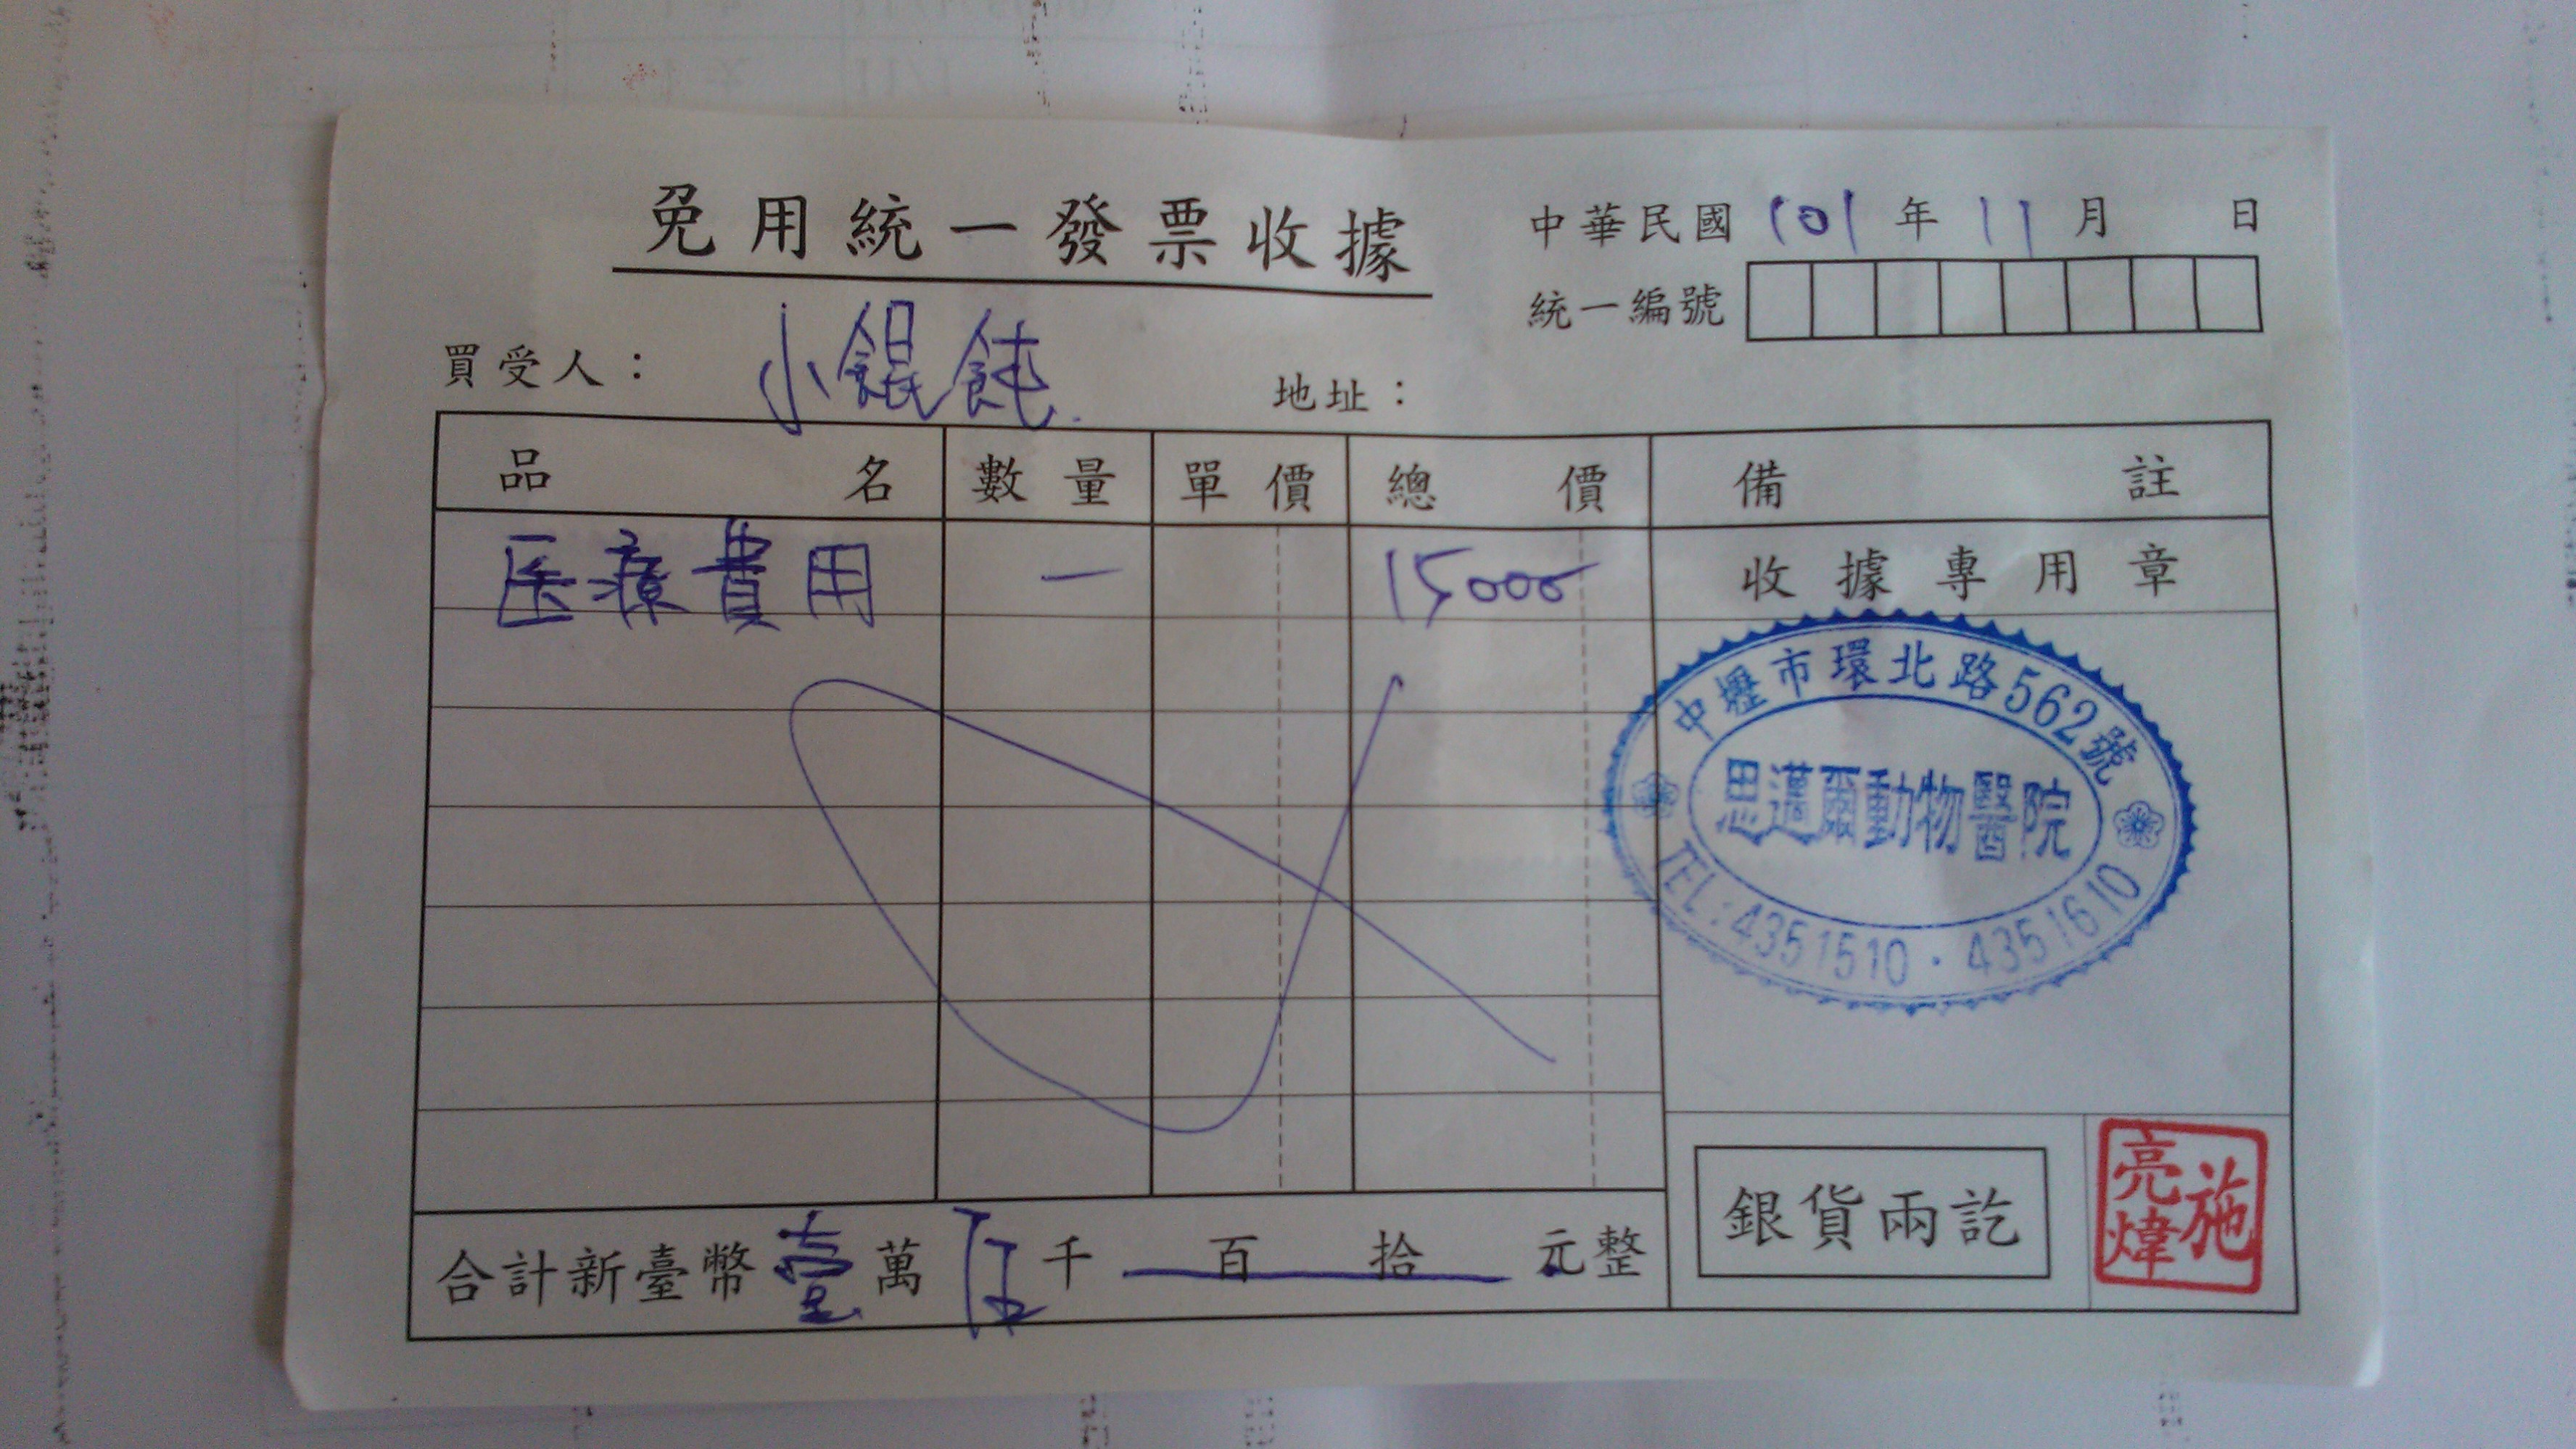 免用統一發票收據
中華民國 101 年 11 月 日
統一編號
買受人： 小餛飩
地址：
品名 數量 單價 總價 備註
医療費用 一 15000 收據專用章
中壢市環北路562號
思邁爾動物醫院
TEL：4351510．4351610
合計新臺幣 壹 萬 伍 千 百 拾 元整
銀貨兩訖
施亮煒